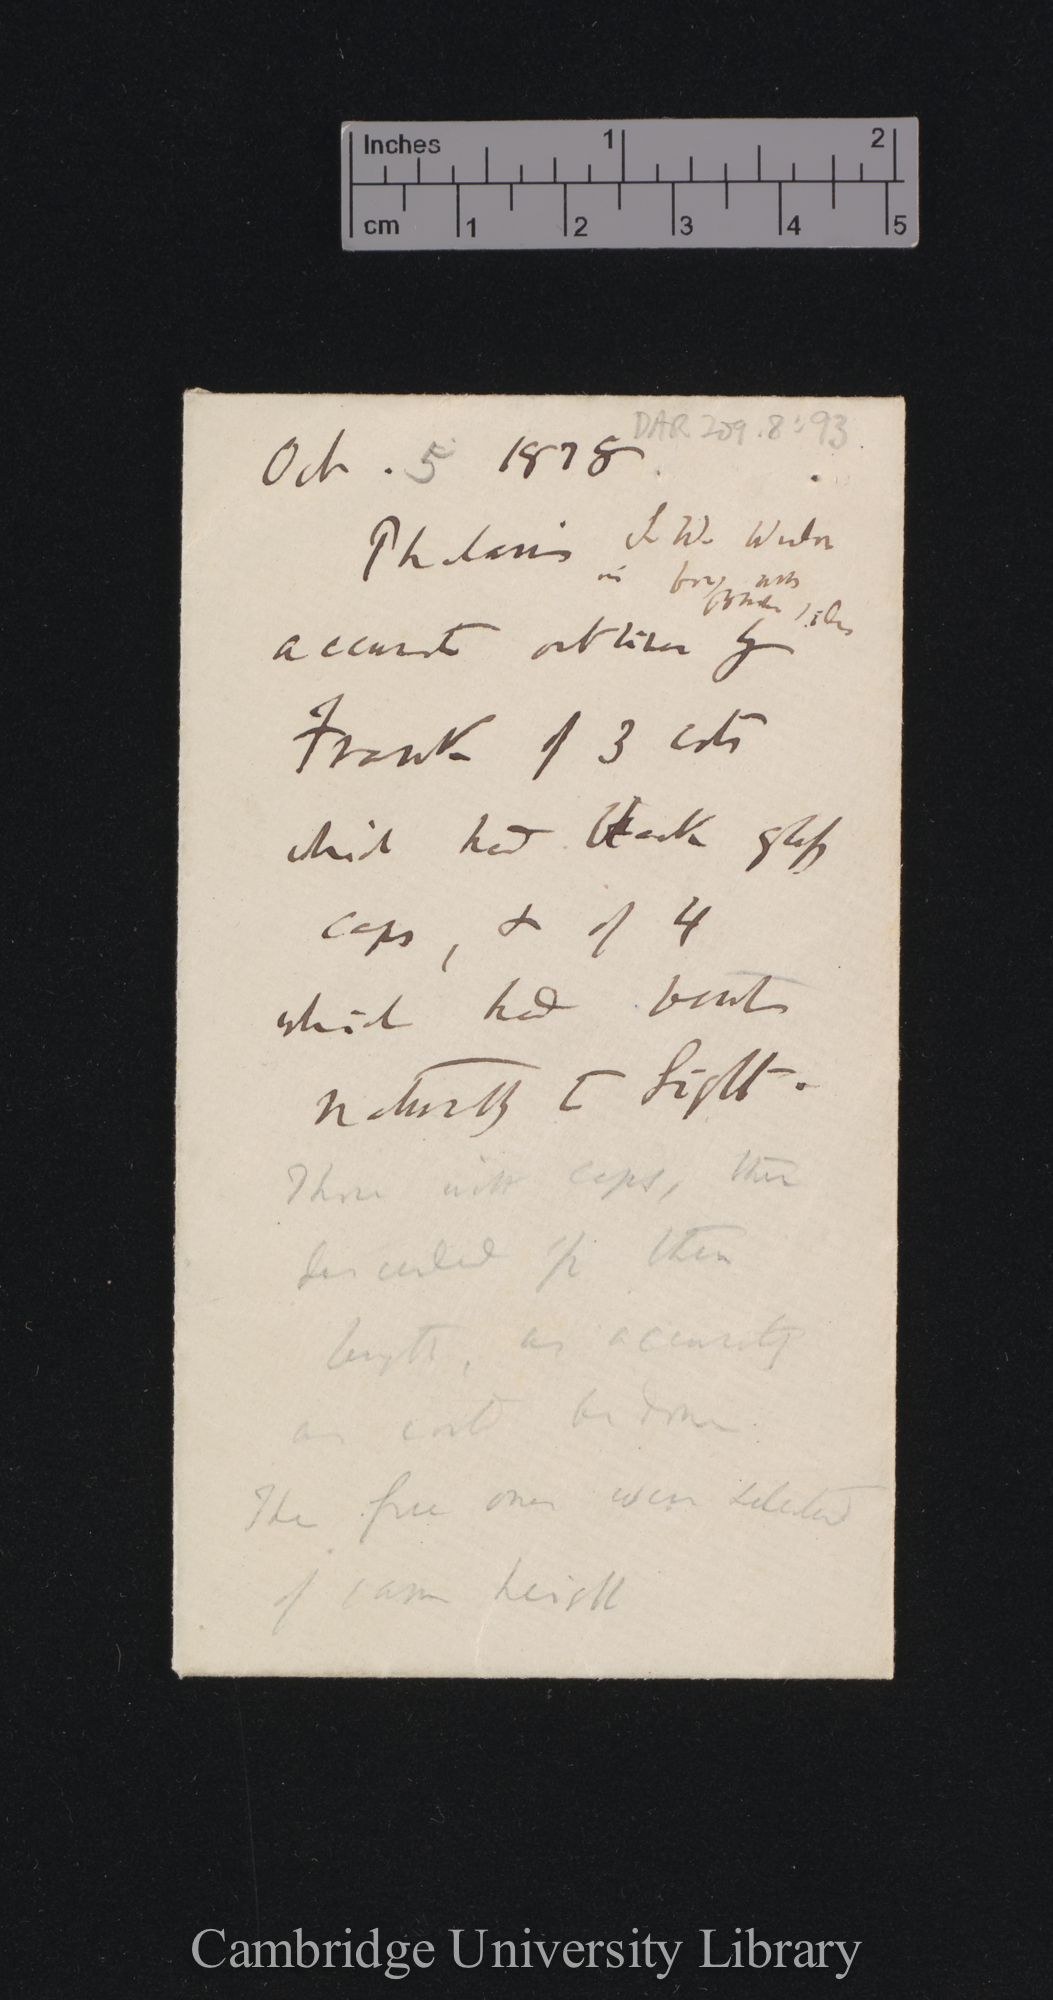 Inches 1 2
cm 1 2 3 4 5
DAR 209.8:93
Oct. 5 1878.
Phalaris
in box with
accurate outlines by
Frank of 3 cots
which had black glass
caps, & of 4
which had bent
naturally to Light.
Those with caps, then
descended of their
length, as accurately
as could be done.
The free ones were selected
of same height
Cambridge University Library